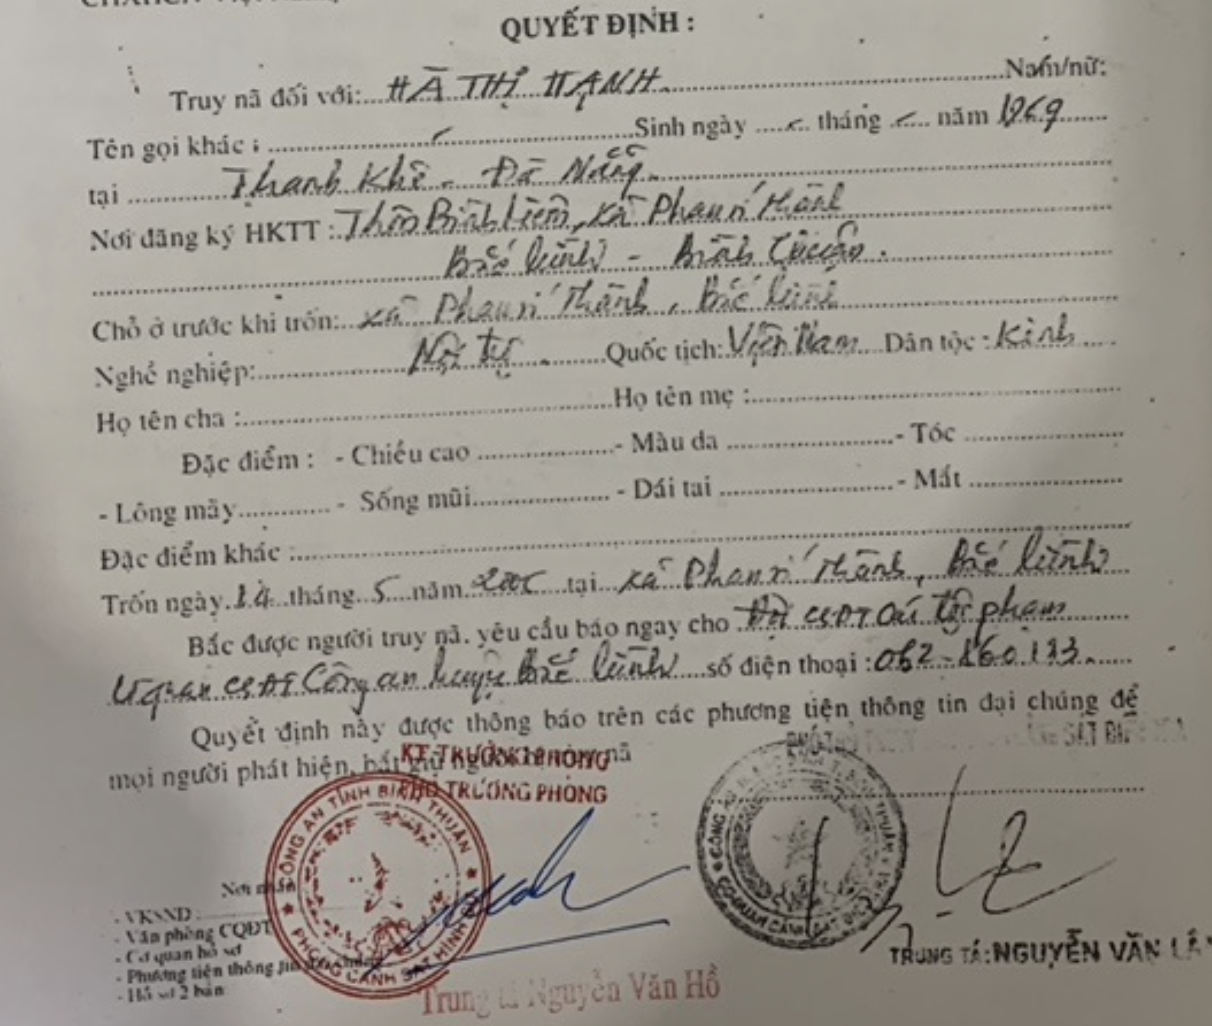 QUYẾT ĐỊNH :
Truy nã đối với: HÀ THỊ HẠNH Nam/nữ:
Tên gọi khác : Sinh ngày tháng năm 1969
tại Thanh Khê - Đà Nẵng
Nơi đăng ký HKTT : Thôn Bình Liêm, xã Phan rí Thành
Bắc Bình - Bình Thuận.
Chỗ ở trước khi trốn: xã Phan rí Thành, Bắc Bình
Nghề nghiệp: Nội trợ Quốc tịch: Việt Nam Dân tộc : Kinh
Họ tên cha : Họ tên mẹ :
Đặc điểm : - Chiều cao - Màu da - Tóc
- Lông mày - Sống mũi - Dái tai - Mắt
Đặc điểm khác :
Trốn ngày 14 tháng 5 năm tại xã Phan rí Thành, Bắc Bình
Bắc được người truy nã. yêu cầu báo ngay cho Đội CSĐT tội phạm
CSĐT Công an huyện Bắc Bình số điện thoại : 062-860.133
Quyết định này được thông báo trên các phương tiện thông tin đại chúng để
mọi người phát hiện, bắt giữ nã
KT TRƯỞNG PHÒNG
PHÓ TRƯỞNG PHÒNG
CÔNG AN TỈNH BÌNH THUẬN
PHÒNG CẢNH SÁT HÌNH
Nơi nhận
- VKSND
- Văn phòng CQĐT
- Cơ quan hồ sơ
- Phương tiện thông tin
- Hồ sơ 2 bản
Trung tá Nguyễn Văn Hồ
TRUNG TÁ: NGUYỄN VĂN